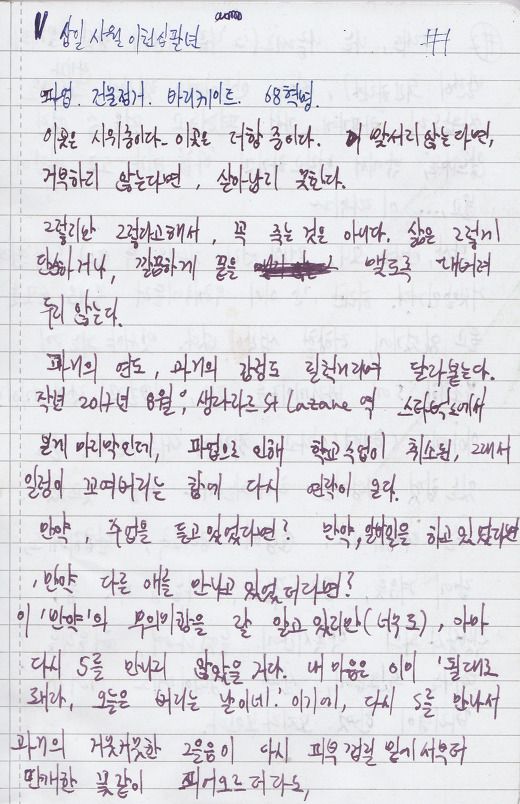 삼일 사월 이천십팔년 #1
파업. 건물점거. 바리케이트. 68혁명.
이곳은 시위중이다. 이곳은 저항 중이다. 맞서지 않는다면,
거북하지 않는다면, 살아남지 못한다.
그렇지만 그렇다고해서, 꼭 죽는 것은 아니다. 삶은 그렇게
단순하거나, 깔끔하게 끝을 맺도록 내버려
두지 않는다.
과거의 연도, 과거의 감정도 질척거리며 달라붙는다.
작년 2017년 8월, 생라자르 St Lazare 역 스타벅스에서
본게 마지막인데, 파업으로 인해 학교수업이 취소된, 그래서
일정이 꼬여버리는 참에 다시 연락이 온다.
만약, 수업을 듣고있었다면? 만약, 알바일을 하고있었다면
, 만약 다른 애를 만나고 있었더라면?
이 '만약'의 무의미함을 잘 알고 있지만(너무도), 아마
다시 S를 만나지 않았을 거다. 내 마음은 이미 '될대로
돼라, 오늘은 버리는 날이네' 이기에, 다시 S를 만나서
과거의 거뭇거뭇한 그을음이 다시 피부 껍질 밑에서부터
만개한 꽃같이 피어오르더라도,